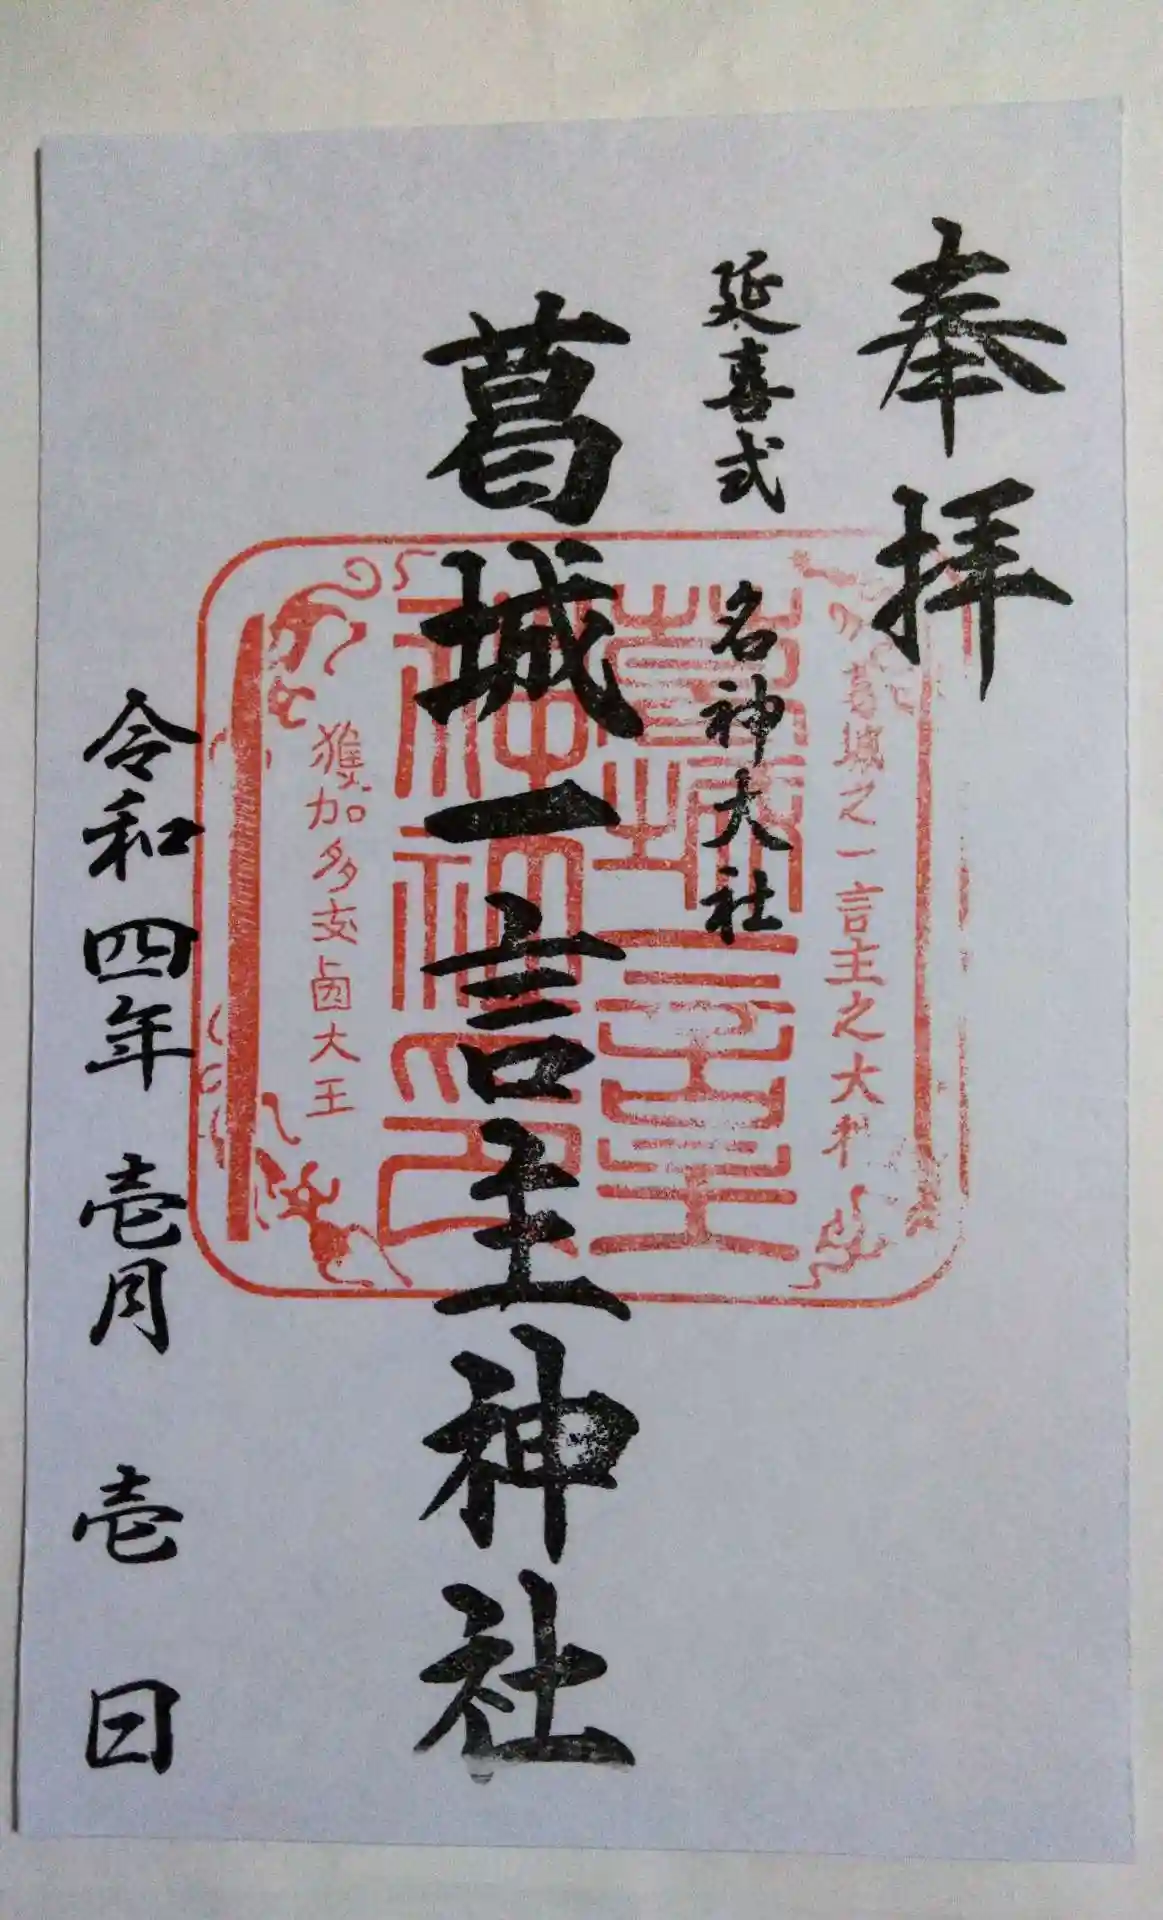 奉拝
延喜式 名神大社
葛城之一言主之大神
葛城一言主神社印
葛城一言主神社
獲加多支鹵大王
令和四年 壱月 壱 日